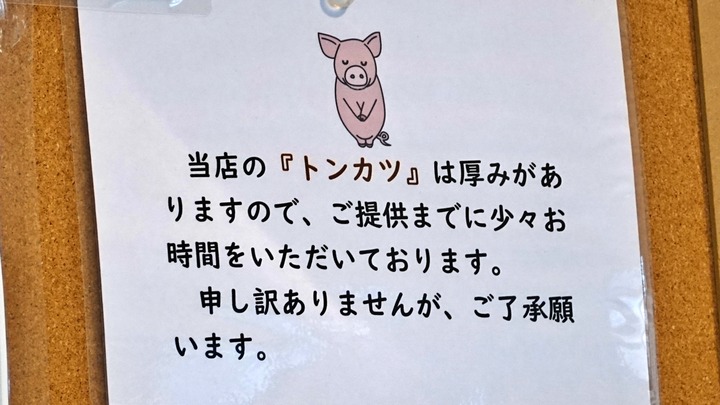 当店の『トンカツ』は厚みがあ
りますので、ご提供までに少々お
時間をいただいております。
申し訳ありませんが、ご了承願
います。